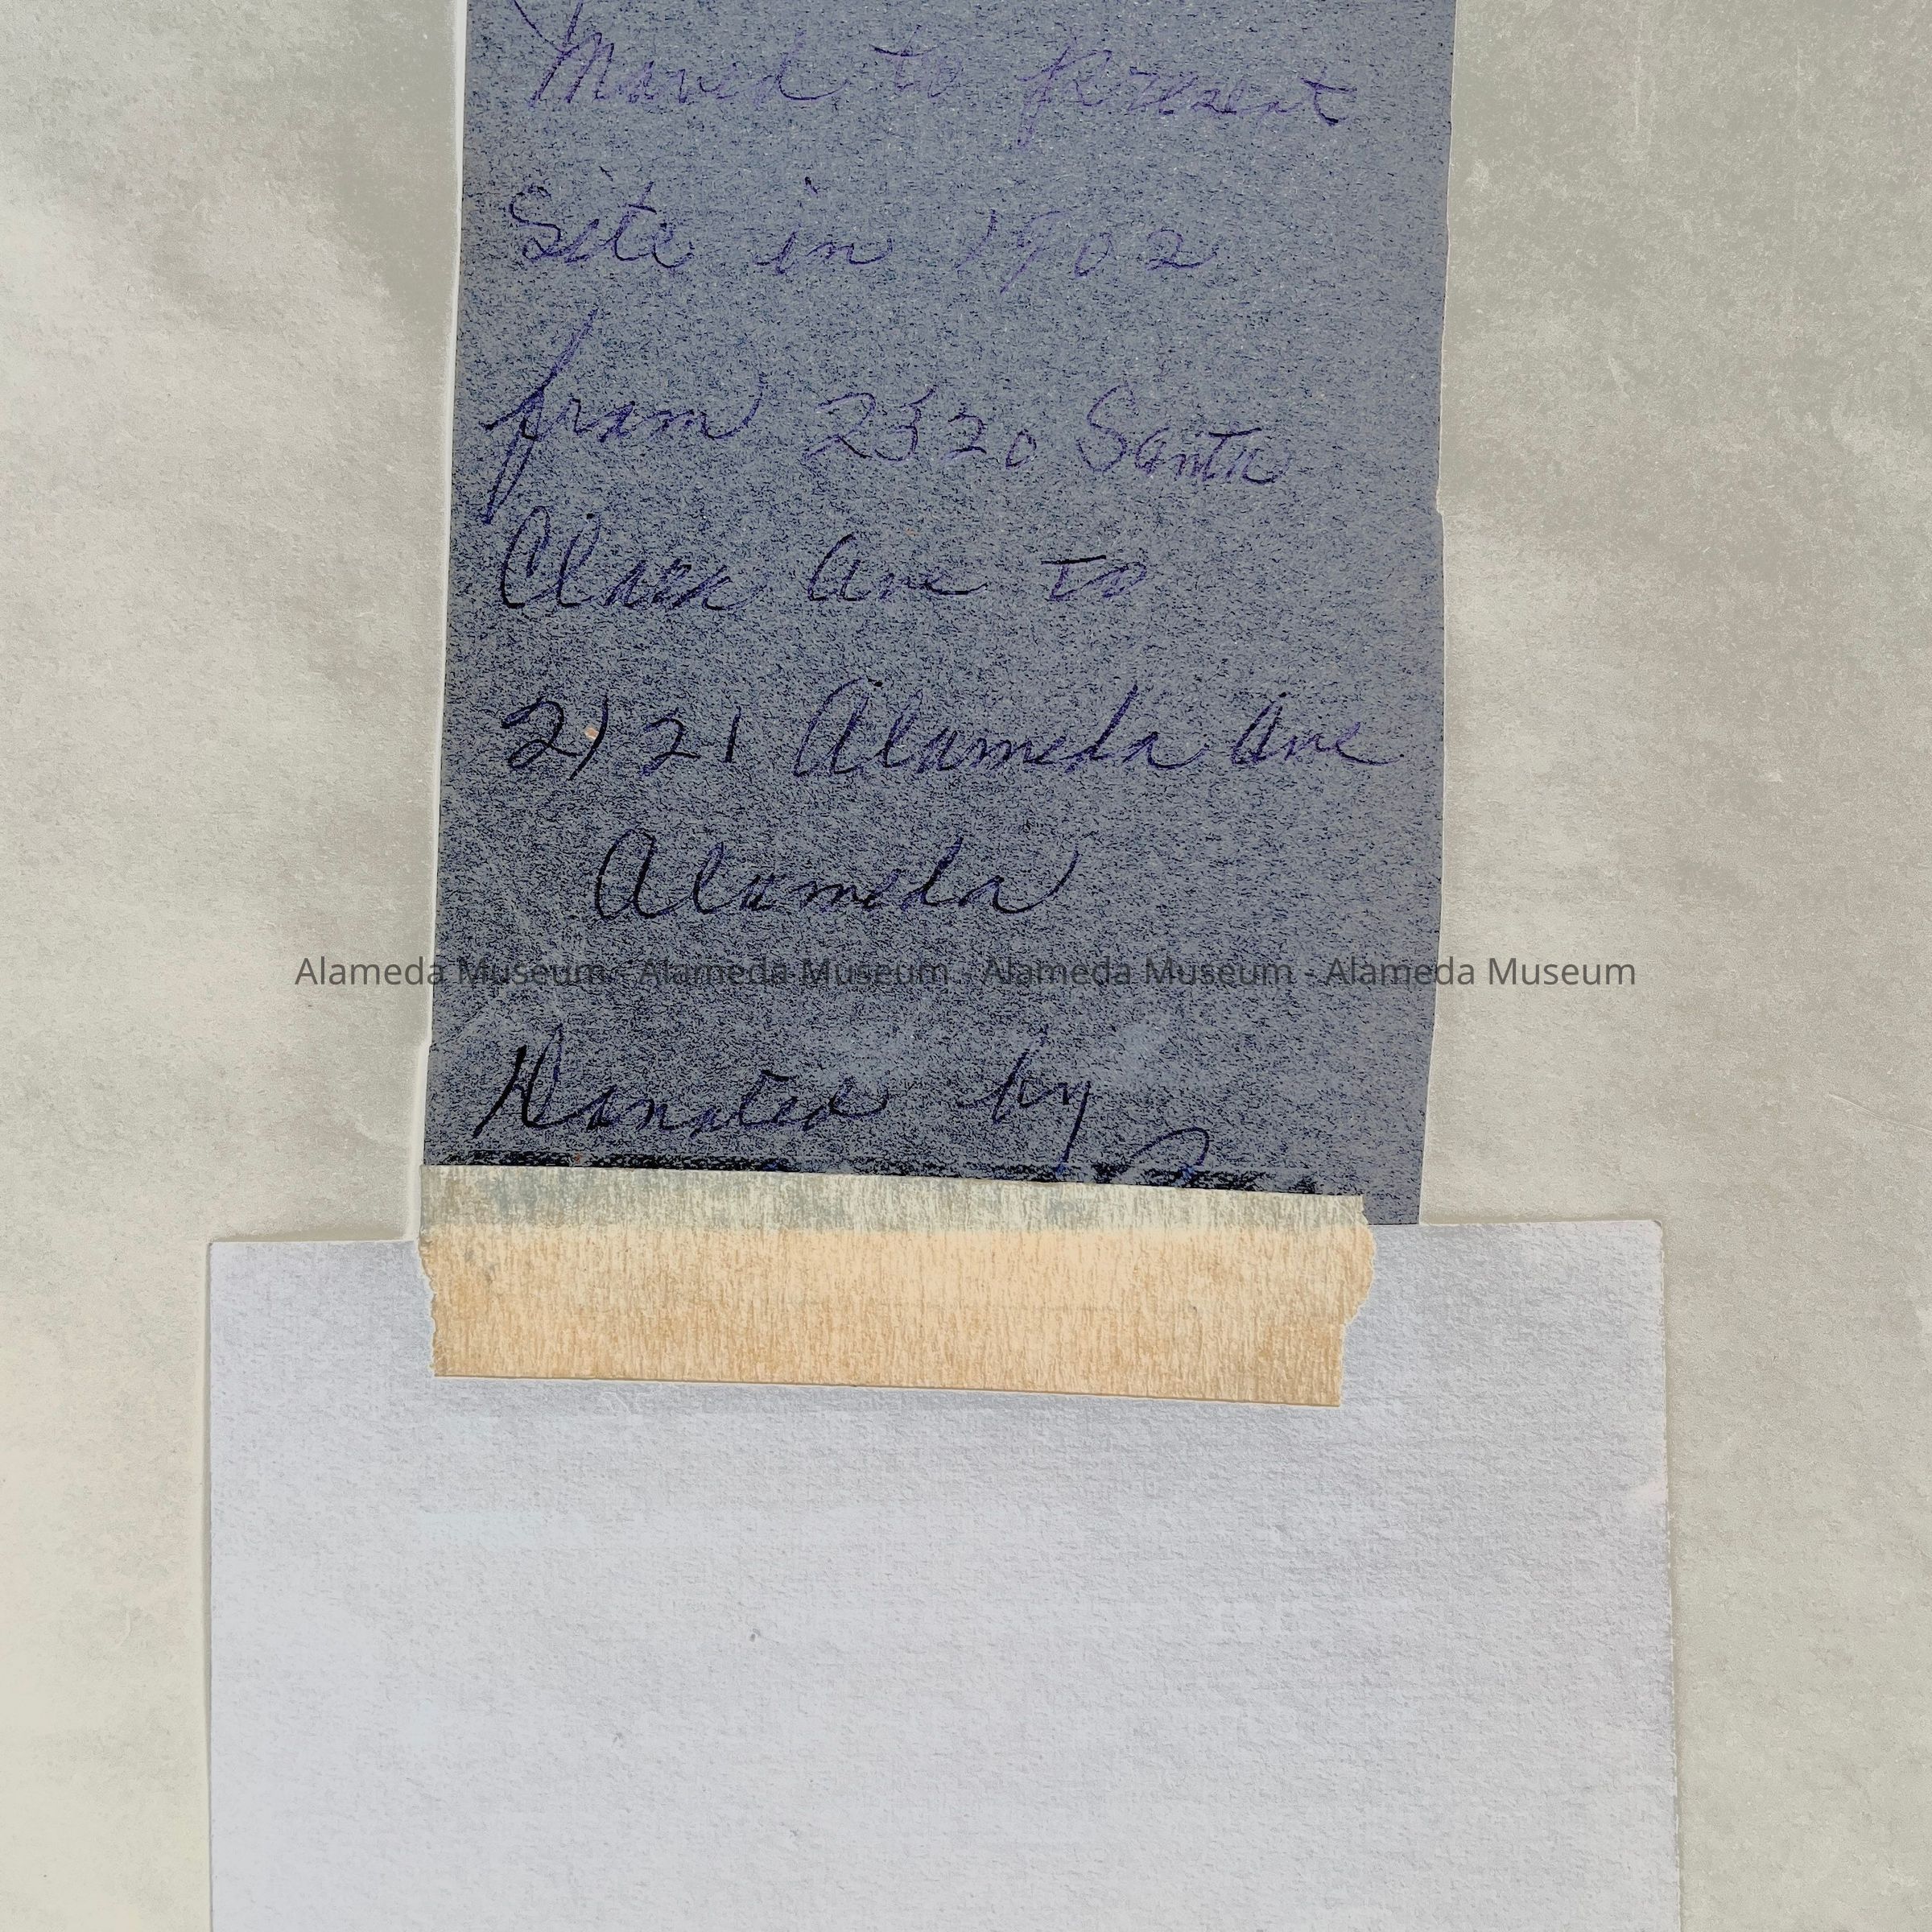 Moved to present
Site in 1902
from 2320 Santa
Clara Ave to
2121 Alameda Ave
Alameda
Alameda Museum - Alameda Museum - Alameda Museum - Alameda Museum
Donated by